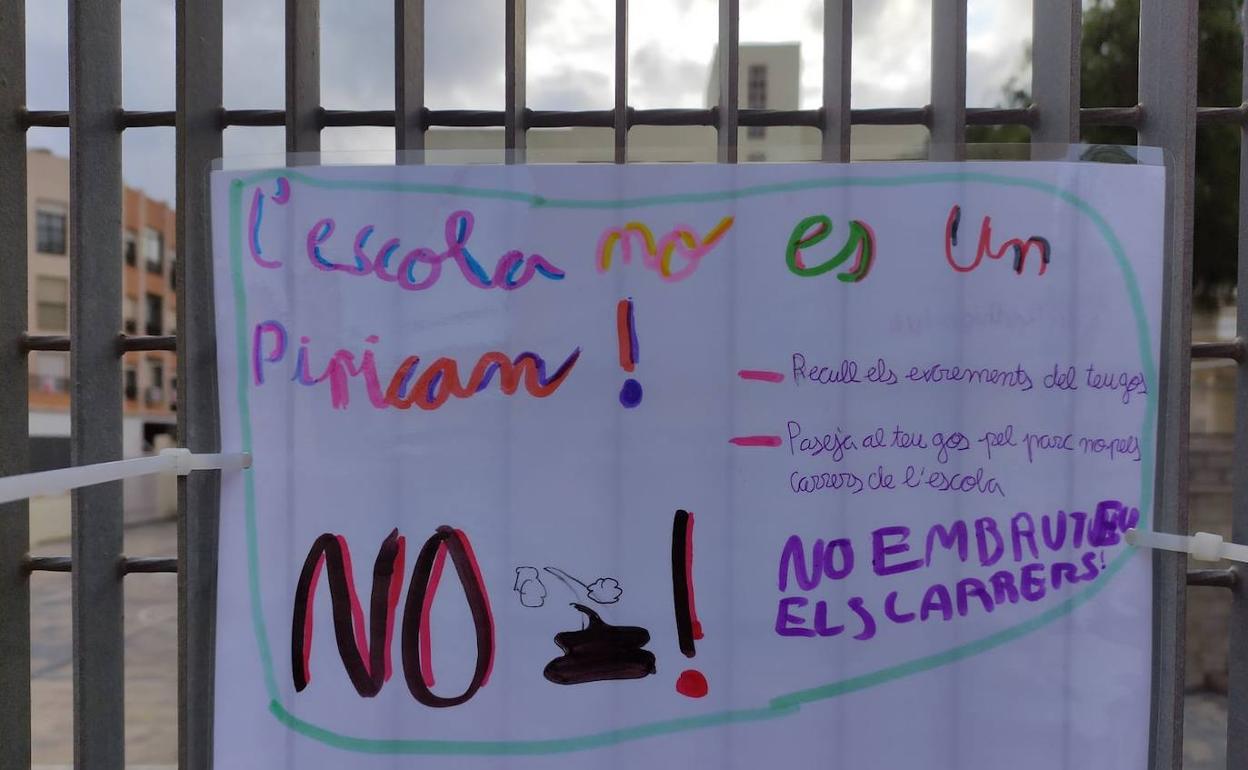 L'escola no es un
Pipican!
- Recull els excrements del teu gos
- Paseja al teu gos pel parc no pels
carrers de l'escola
NO EMBRUTEU
ELS CARRERS!
NO !